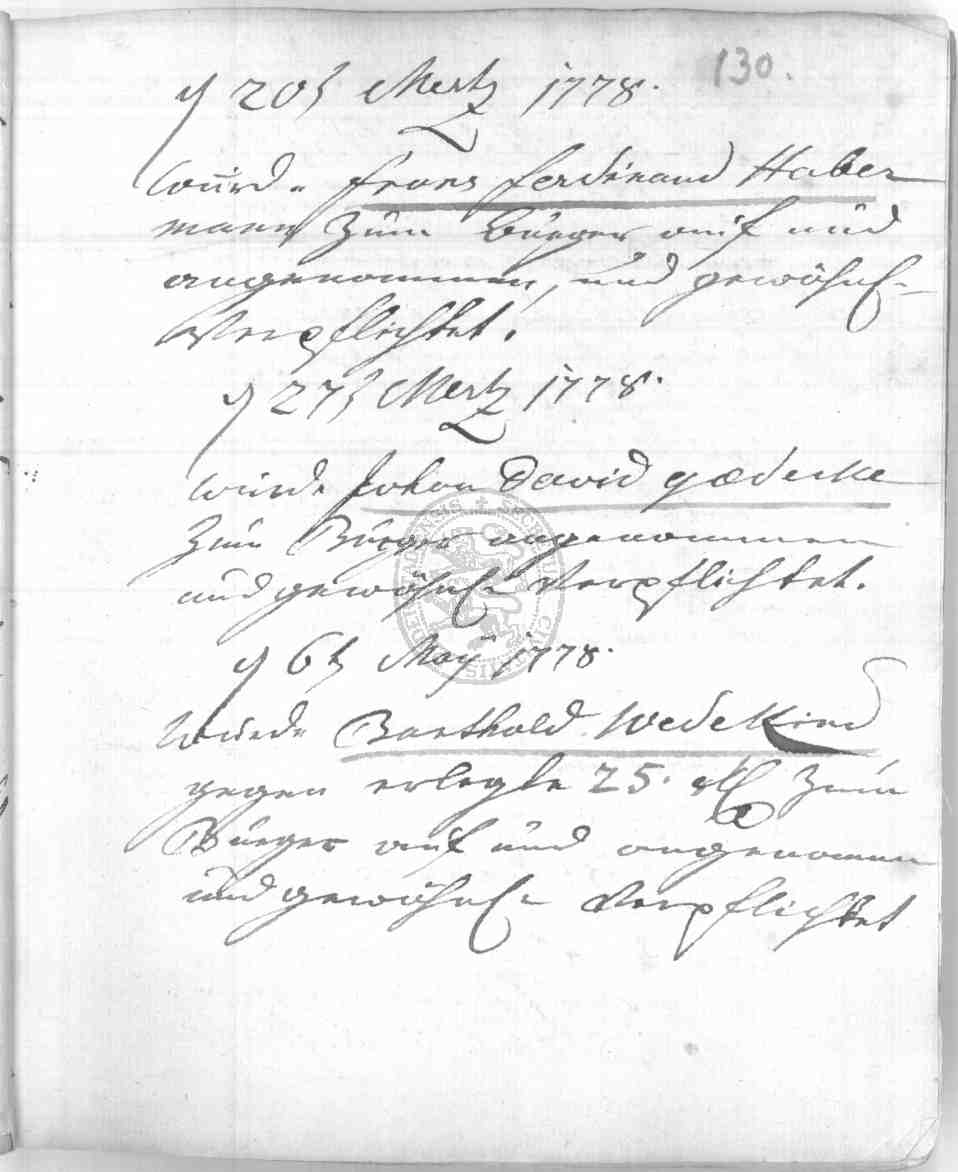 130.
d 20t Mertz 1778.
würde Frans Ferdinand Haber
mann zum Bürger auf und
angenommen, und gewöhnl.
Verpflichtet.
d 27t Mertz 1778.
würde Johan David Gædecke
zum Bürger angenommen
und gewöhnl. Verpflichtet.
d 6t May 1778.
würde Barthold Wedekind
gegen erlegte 25. zum
Bürger auf und angenomen
und gewöhnl. Verpflichtet